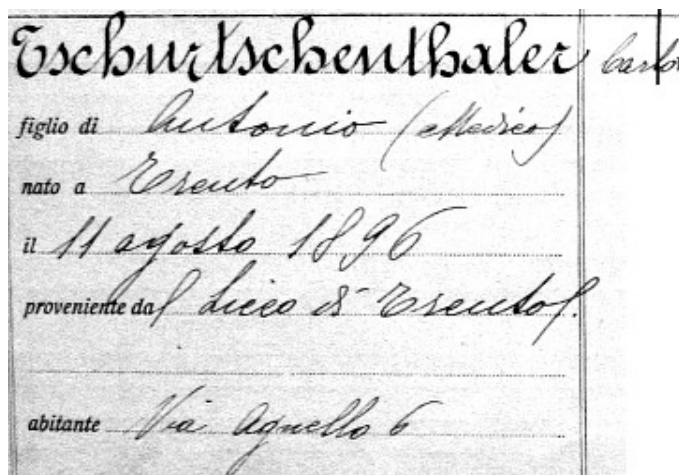 Tschurtschenthaler Carlo
figlio di Antonio (Medico)
nato a Trento
il 11 agosto 1896
proveniente dal Liceo di Trento.
abitante Via Agnello 6